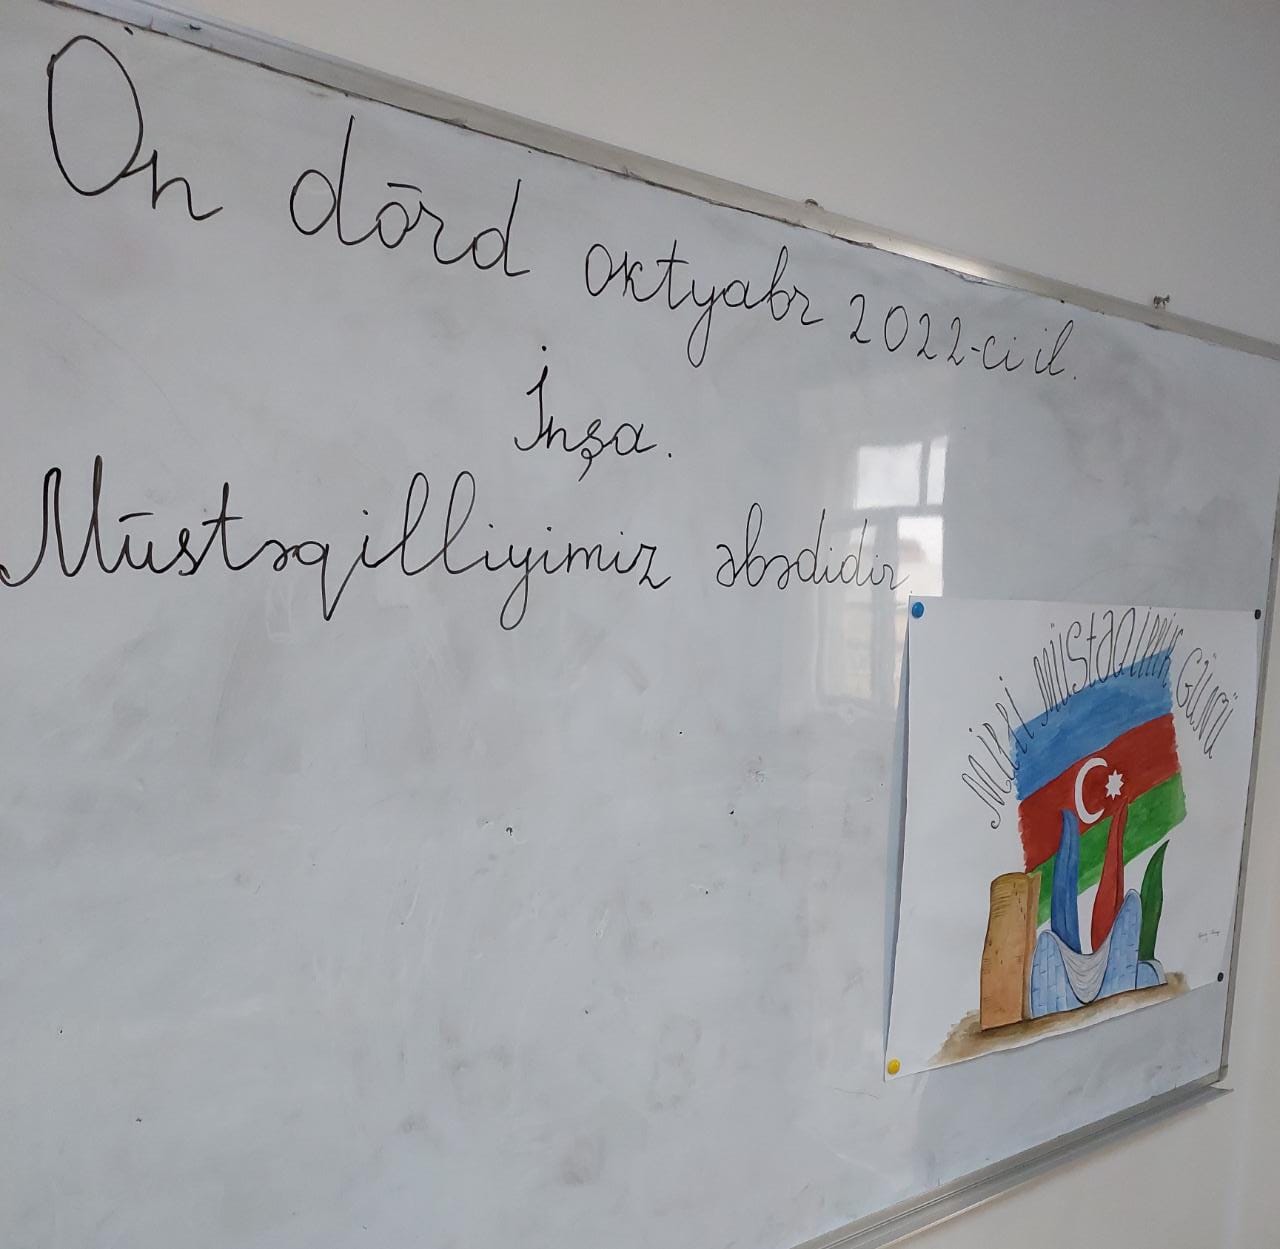 On dörd oktyabr 2022-ci il.
İnşa.
Müstəqilliyimiz əbədidir.
Milli MÜstəQillik Günü